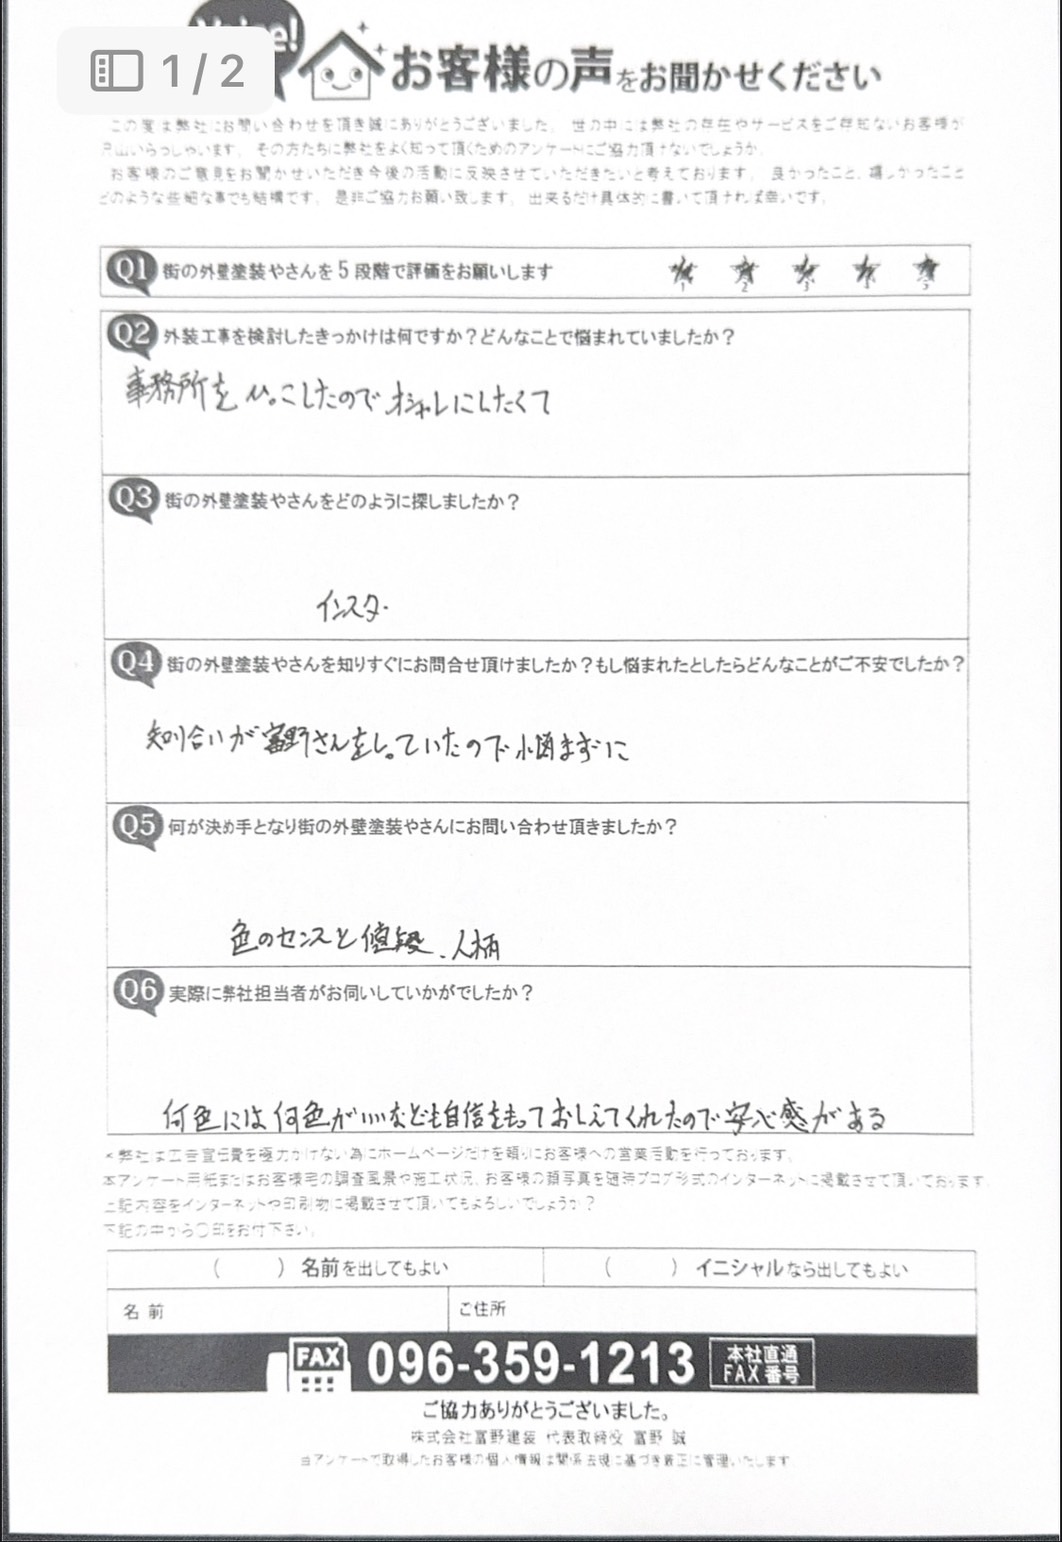 1/2
お客様の声をお聞かせください
この度は弊社にお問い合わせを頂き誠にありがとうございました。 世の中には弊社の存在やサービスをご存知ないお客様が
沢山いらっしゃいます。 その方たちに弊社をよく知って頂くためのアンケートにご協力頂けないでしょうか。
お客様のご意見をお聞かせいただき今後の活動に反映させていただきたいと考えております。 良かったこと、嬉しかったこと
どのような些細な事でも結構です。 是非ご協力お願い致します。 出来るだけ具体的に書いて頂ければ幸いです。
Q1 街の外壁塗装やさんを5段階で評価をお願いします
1 2 3 4 5
Q2 外装工事を検討したきっかけは何ですか？どんなことで悩まれていましたか？
事務所を したので オシャレにしたくて
Q3 街の外壁塗装やさんをどのように探しましたか？
インスタ
Q4 街の外壁塗装やさんを知りすぐにお問合せ頂けましたか？もし悩まれたとしたらどんなことがご不安でしたか？
知り合いが富野さんをしっていたので悩まずに
Q5 何が決め手となり街の外壁塗装やさんにお問い合わせ頂きましたか？
色のセンスと値段、人柄
Q6 実際に弊社担当者がお伺いしていかがでしたか？
何色には何色がいいなども自信をもっておしえてくれたので安心感がある
*弊社は広告宣伝費を極力かけない為にホームページだけを頼りにお客様への営業活動を行っております。
本アンケート用紙またはお客様宅の調査風景や施工状況、お客様の顔写真を随時ブログ形式のインターネットに掲載させて頂いております。
上記内容をインターネットや印刷物に掲載させて頂いてもよろしいでしょうか？
下記の中から〇印をお付下さい。
（　　）名前を出してもよい （　　）イニシャルなら出してもよい
名前 ご住所
FAX 096-359-1213 本社直通FAX番号
ご協力ありがとうございました。
株式会社富野建装 代表取締役 富野 誠
当アンケートで取得したお客様の個人情報は関係法規に基づき厳正に管理いたします